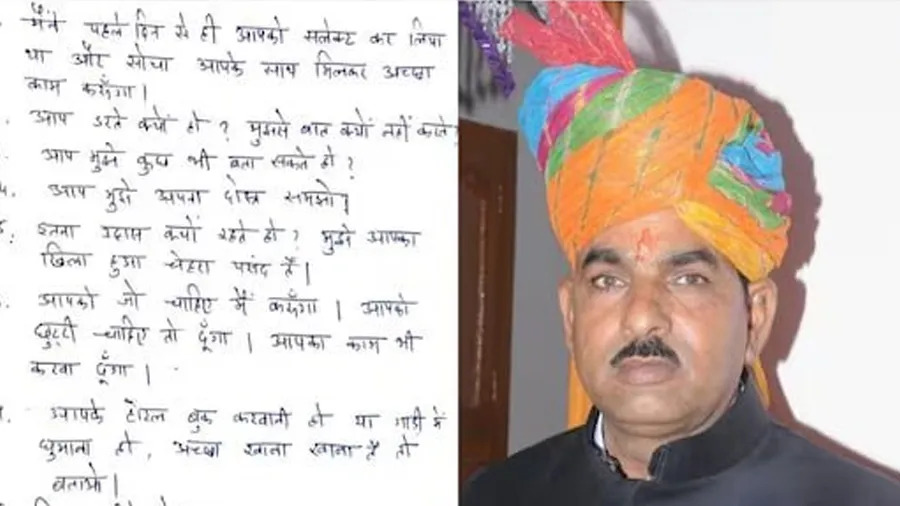 मैंने पहले दिन से ही आपको सलेक्ट कर लिया
था और सोचा आपके साथ मिलकर अच्छा
काम करूँगा।
आप डरते क्यों हो ? मुझसे बात क्यों नहीं करते ?
आप मुझे कुछ भी बता सकते हो ?
आप मुझे अपना दोस्त समझो।
इतना उदास क्यों रहते हो ? मुझे आपका
खिला हुआ चेहरा पसंद है।
आपको जो चाहिए मैं करूँगा । आपको
छुट्टी चाहिए तो दूँगा । आपका काम भी
करवा दूँगा ।
आपके होटल बुक करवानी हो या गाड़ी में
घुमाना हो , अच्छा खाना खाना है तो
बताओ ।